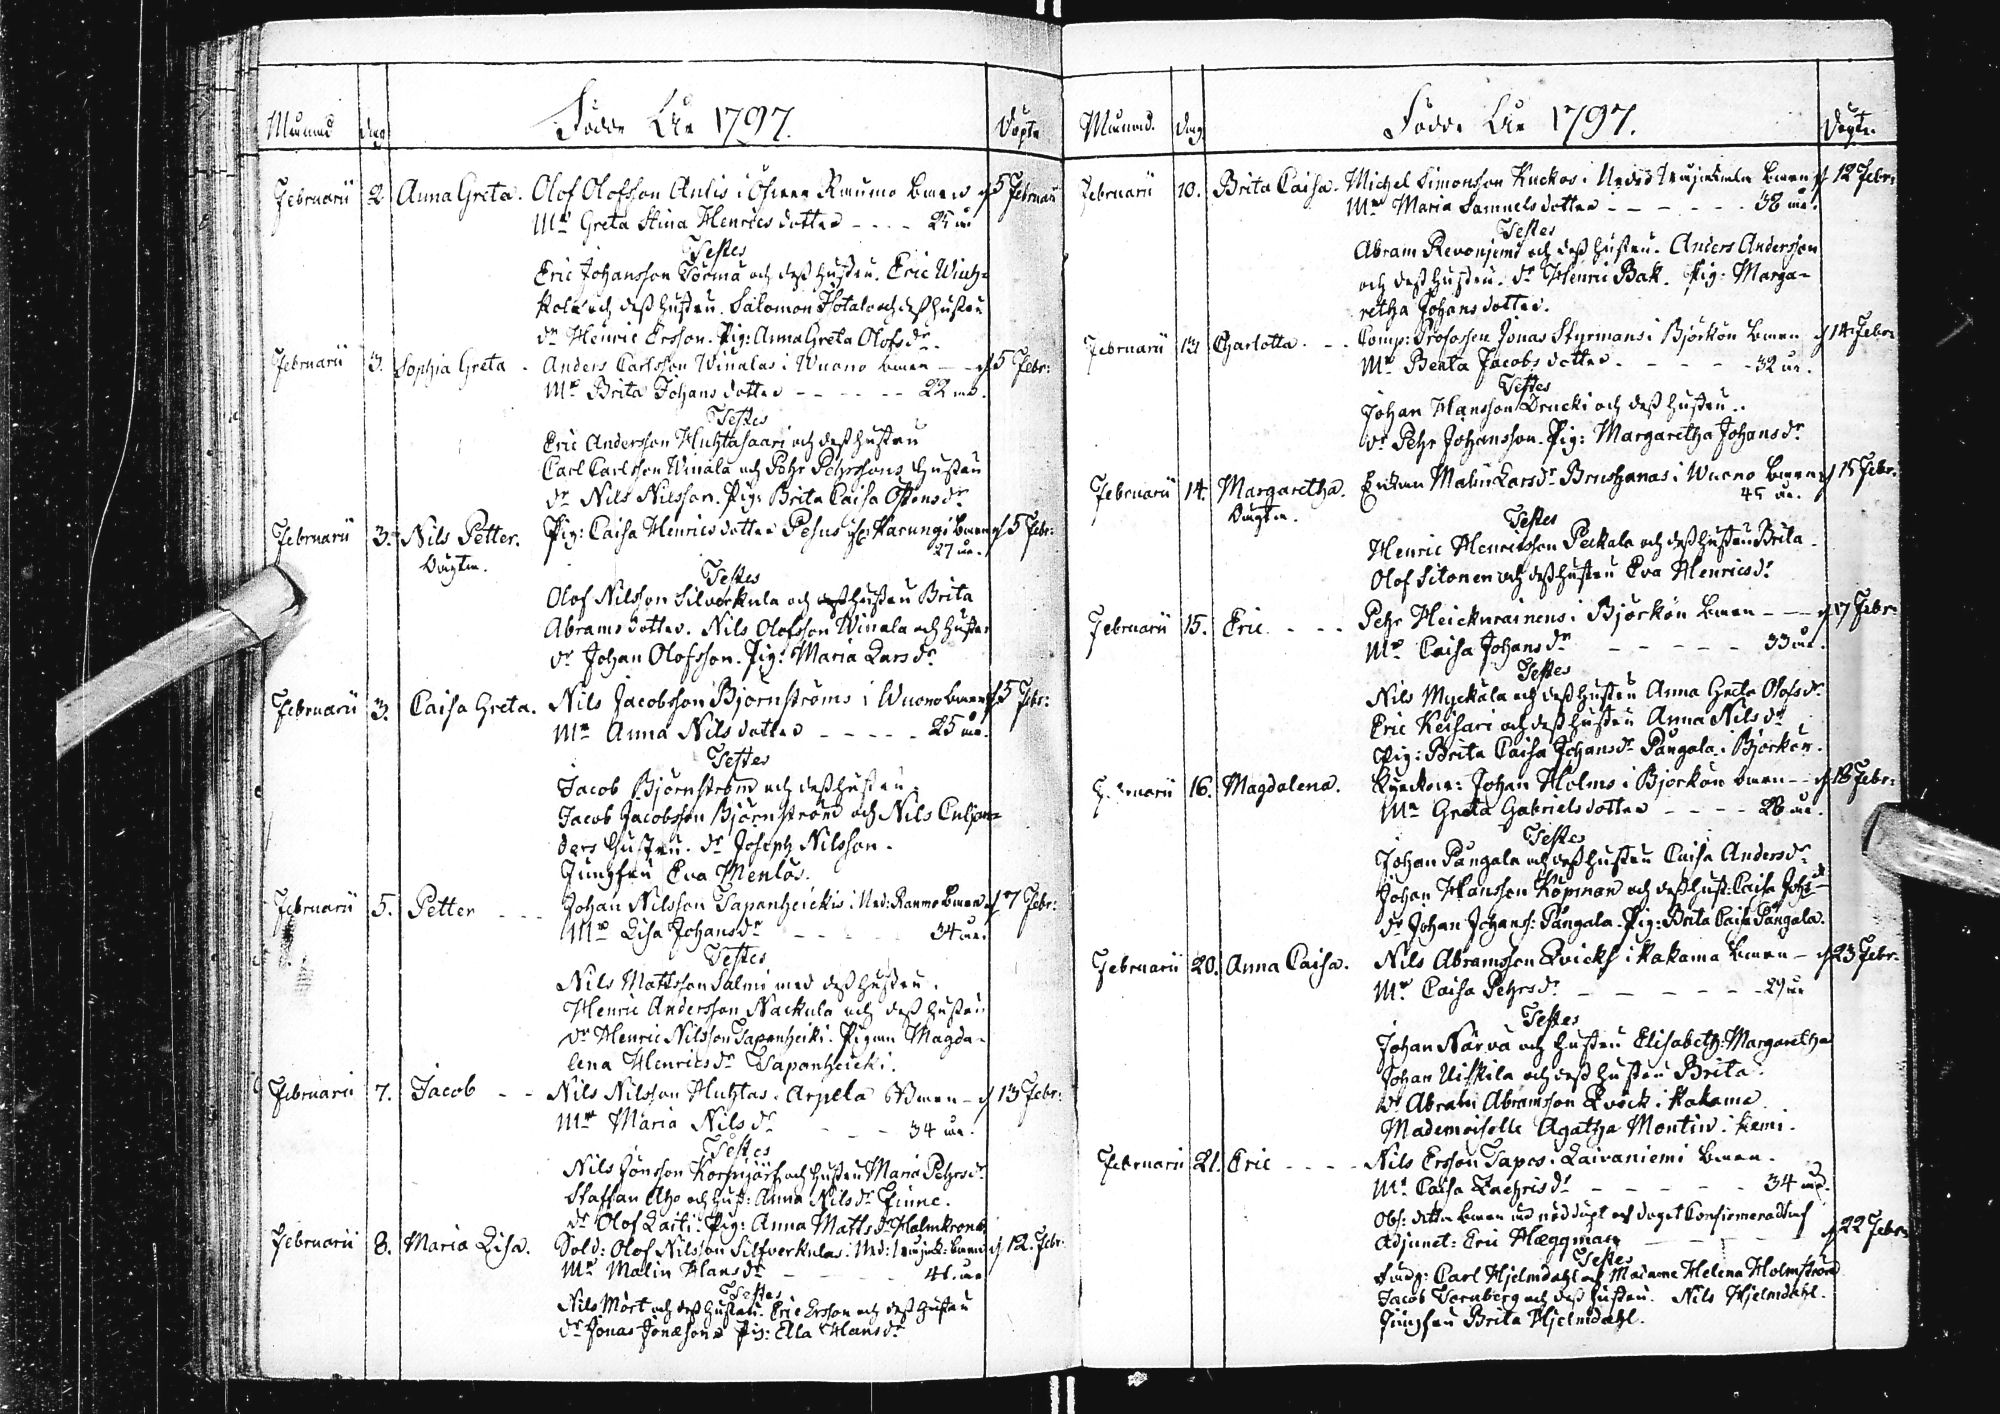 Månad dag Födde Åhr 1797. Döpte
Februarii 2. Anna Greta. Olof Olofsson Anlis i Öfverre Raumo Barn d 5 Februarii
Mr Greta Stina Henricsdotter - - - - 25 år
Testes
Eric Johansson Törmä och dess hustru. Eric
och dess hustru. Salomon och dess hustru
dr Henric Ersson. Pig: Anna Greta Olofs dr.
Februarii 3. Sophia Greta. Anders Carlsson Winalas i Wuono barn - d 5 Febr:
Mr Brita Johansdotter - - - - - - 22 år.
Testes
Eric Andersson Huhtasaari och dess hustru
Carl Carlsson Winala och Pehr Pehrssons hustru
dr Nils Nilsson. Pig: Brita Caisa dr
Februarii 3. Nils Petter. Pig: Caisa Henricsdotter i Karungi barn d 5 Febr:
Oägta. 27 år.
Testes
Olof Nilsson Silverkula och hustru Brita
Abramsdotter. Nils Olofsson Winala och hustru
dr Johan Olofsson. Pig: Maria Lars dr
Februarii 3. Caisa Greta. Nils Jacobsson Björnströms i Wuono barn d 5 Febr:
Mr Anna Nilsdotter - - - - - 25 år.
Testes
Jacob Björnström och dess hustru.
Jacob Jacobsson Björnström och Nils
ders hustru. dr Joseph Nilsson.
Jungfru Eva Menlös.
Februarii 5. Petter - - - Johan Nilsson Tapanheickis i Ned: Raumo Barn d 7 Febr:
Mr Lisa Johans dr - - - - - 34 år.
Testes
Nils Mattsson Salmi med dess hustru.
Henric Andersson Nackula och dess hustru
dr Henric Nilsson Tapanheicki. Pigan Magda-
lena Henrics dr Tapanheicki.
Februarii 7. Jacob - - Nils Nilsson Huhtas i Arpela Barn - d 13 Febr:
Mr Maria Nils dr - - - 34 år.
Testes
Nils Jönsson och hustru Maria Pehrs dr
Staffan Aho och hust: Anna Nils dr Finne.
dr Olof Laiti. Pig: Anna Matts dr Halmkrona
Februarii 8. Maria Lisa. Sold: Olof Nilsson Silfverkulas i Ned: barn d 12. Febr:
Mr Malin Hans dr - - - - - år
Testes
Nils Mört och dess hustru. Eric Ersson och dess hustru
dr Jonas Jonæsons Pig: Ella Hans dr
Månad. dag Födde Åhr 1797. Döpte.
Februarii 10. Brita Caisa. Michel Simonsson Kuckos i Barn d 12 Febr:
Mr Maria Samuelsdotter - - - - - - 38 år.
Testes
Abram och dess hustru. Anders Andersson
och dess hustru. dr Henric Bak. Pig: Marga-
retha Johansdotter.
Februarii 13 Charlotta. - - Comp: Profossen Jonas Styrmans i Björkön Barn d 14 Febr:
Mr Beata Jacobsdotter - - - - - 32 år.
Testes
Johan Hansson Drucki och dess hustru.
dr Pehr Johansson. Pig: Margaretha Johans dr
Februarii 14. Margaretha. Enkan Malin Lars dr i Wuono Barn d 15 Febr:
Oägta. 45 år.
Testes
Henric Henricsson Peckala och dess hustru Brita
Olof Sitonen och dess hustru Eva Henrics dr
Februarii 15. Eric - - - Pehr Heickurainens i Björkön Barn - - - d 17 Febr:
Mr Caisa Johans dr - - - - - 33 år.
Testes
Nils Myckälä och dess hustru Anna Greta Olofs dr
Eric Keisari och dess hustru Anna Nils dr
Pig: Brita Caisa Johans dr Pangala i Björkön.
Februarii 16. Magdalena. Johan Holms i Björkön barn - - d 18 Febr:
Mr Greta Gabrielsdotter - - - - 28 år.
Testes
Johan Pangala och dess hustru Caisa Anders dr
Johan Hansson Köpman och dess hust: Caisa Johs dr
dr Johan Johanss: Pangala. Pig: Brita Caisa Pangala.
Februarii 20. Anna Caisa. Nils Abramsson Qvicks i Kakama Barn - d 23 Febr:
Mr Caisa Pehrs dr - - - - - - 29 år
Testes
Johan Närvä och hustru Elisabeth: Margaretha
Johan Uiskila och dess hustru Brita.
dr Abram Abramsson Qvick i Kakama
Mademoiselle Agatha Montin i Kemi.
Februarii 21. Eric - - - - Nils Ersson Tapos i Laivaniemi Barn.
Mr Caisa Zachris dr - - - - - 34 år.
Obs: detta barn var nöddöpt och dopet Confirmerades af
Adjunct: Eric Hæggman - - - - d 22 Febr:
Testes
Carl Hjelmdahl och Madame Helena Holmström
Jacob Tornberg och dess hustru. Nils Hjelmdahl.
Jungfru Brita Hjelmdahl.